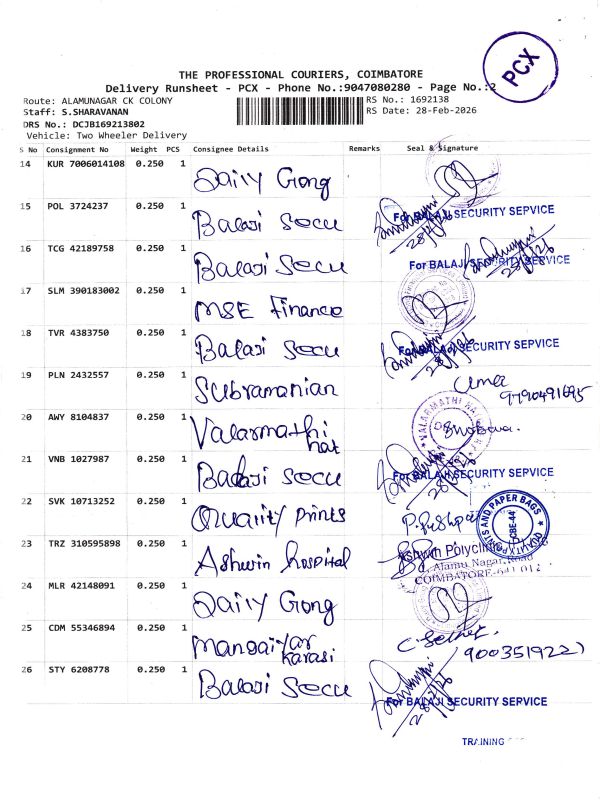 PCX
THE PROFESSIONAL COURIERS, COIMBATORE
Delivery Runsheet - PCX - Phone No.:9047080280 - Page No.:2
Route: ALAMUNAGAR CK COLONY
RS No.: 1692138
Staff: S.SHARAVANAN
RS Date: 28-Feb-2026
DRS No.: DCJB169213802
Vehicle: Two Wheeler Delivery
S No Consignment No Weight PCS Consignee Details Remarks Seal & Signature
14 KUR 7006014108 0.250 1 Daily Gong
15 POL 3724237 0.250 1 Balaji Secu For BALAJI SECURITY SERVICE
28/2/26
16 TCG 42189758 0.250 1 Balaji Secu For BALAJI SECURITY SERVICE
28/2/26
17 SLM 390183002 0.250 1 MSE Finance
18 TVR 4383750 0.250 1 Balaji Secu For BALAJI SECURITY SERVICE
28/2/26
19 PLN 2432557 0.250 1 Subramanian Uma
9790491695
20 AWY 8104837 0.250 1 Valarmathi
VALARMATHI
21 VNB 1027987 0.250 1 Balaji Secu For BALAJI SECURITY SERVICE
28/2/26
22 SVK 10713252 0.250 1 Quality Prints
QUALITY PRINTS AND PAPER BAGS
CBE-44
23 TRZ 310595898 0.250 1 Ashwin hospital Ashwin Polyclinic
Alamu Nagar, Road
COIMBATORE-641 012
24 MLR 42148091 0.250 1 Daily Gong
25 CDM 55346894 0.250 1 Mangaiyar
Karasi
9003519227
26 STY 6208778 0.250 1 Balaji Secu For BALAJI SECURITY SERVICE
28/2/26
TRAINING